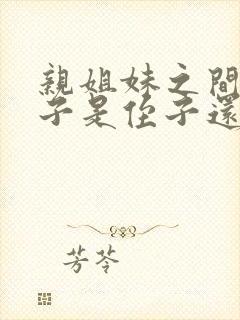 親姐妹之間
子是侄子還
芳苓